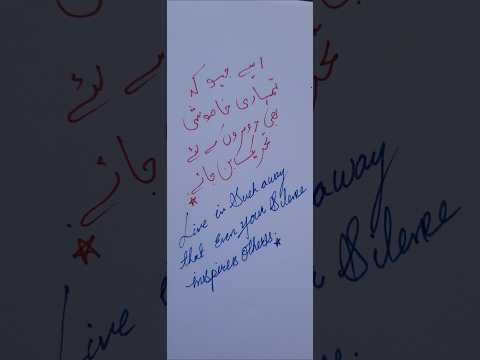 ایسے جیو کہ
تمہاری خاموشی
بھی دوسروں کے لئے
تحریک بن جائے.
Live in Such away
that even your Silence
inspires others.